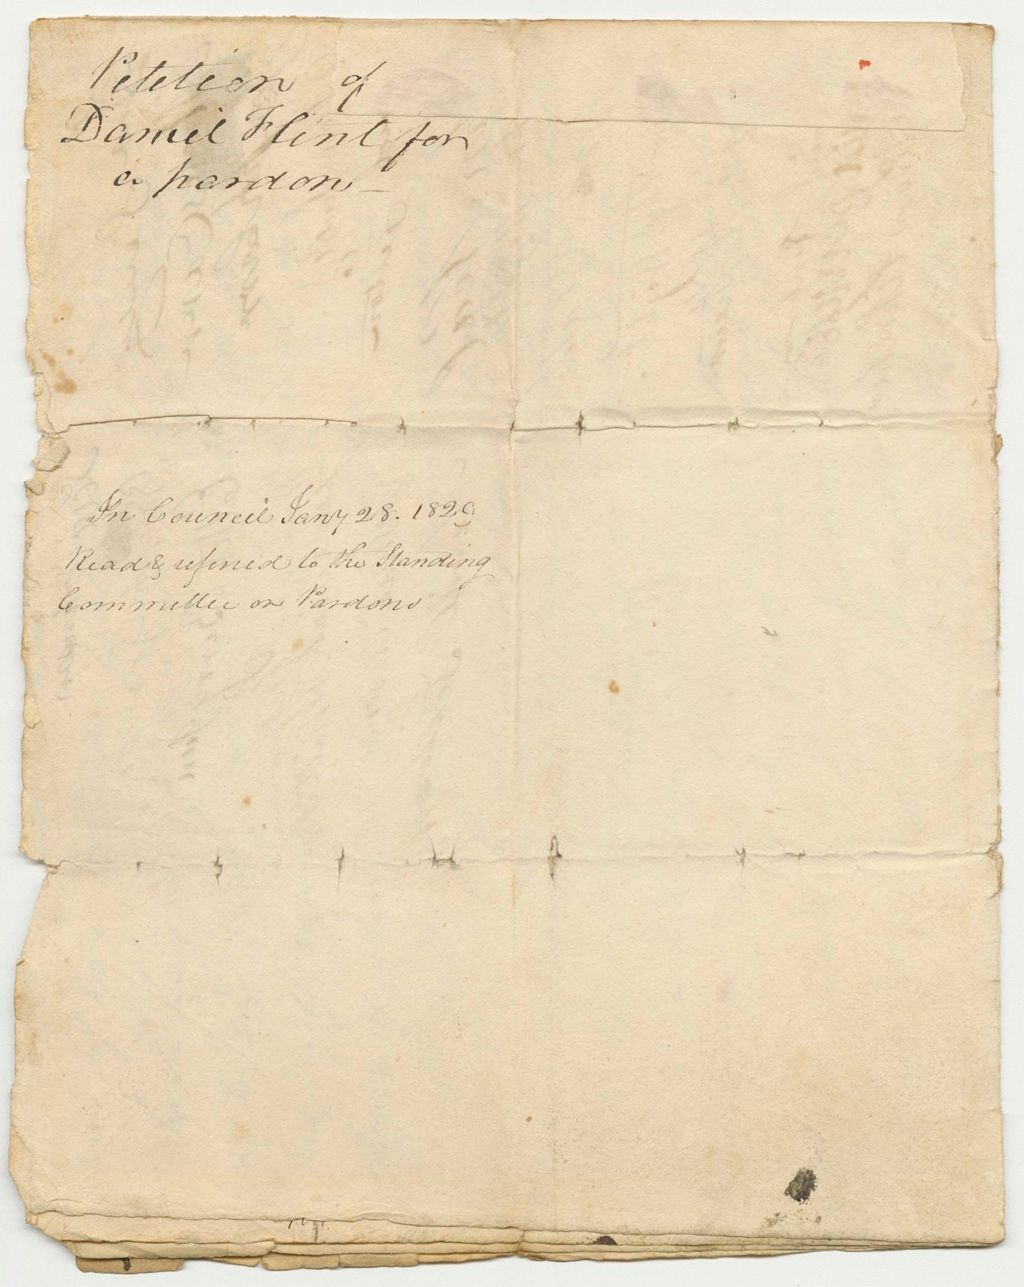 Petition of
Daniel Flint for
a pardon
In Council Jany 28. 1829
Read & referred to the Standing
Committee on Pardons